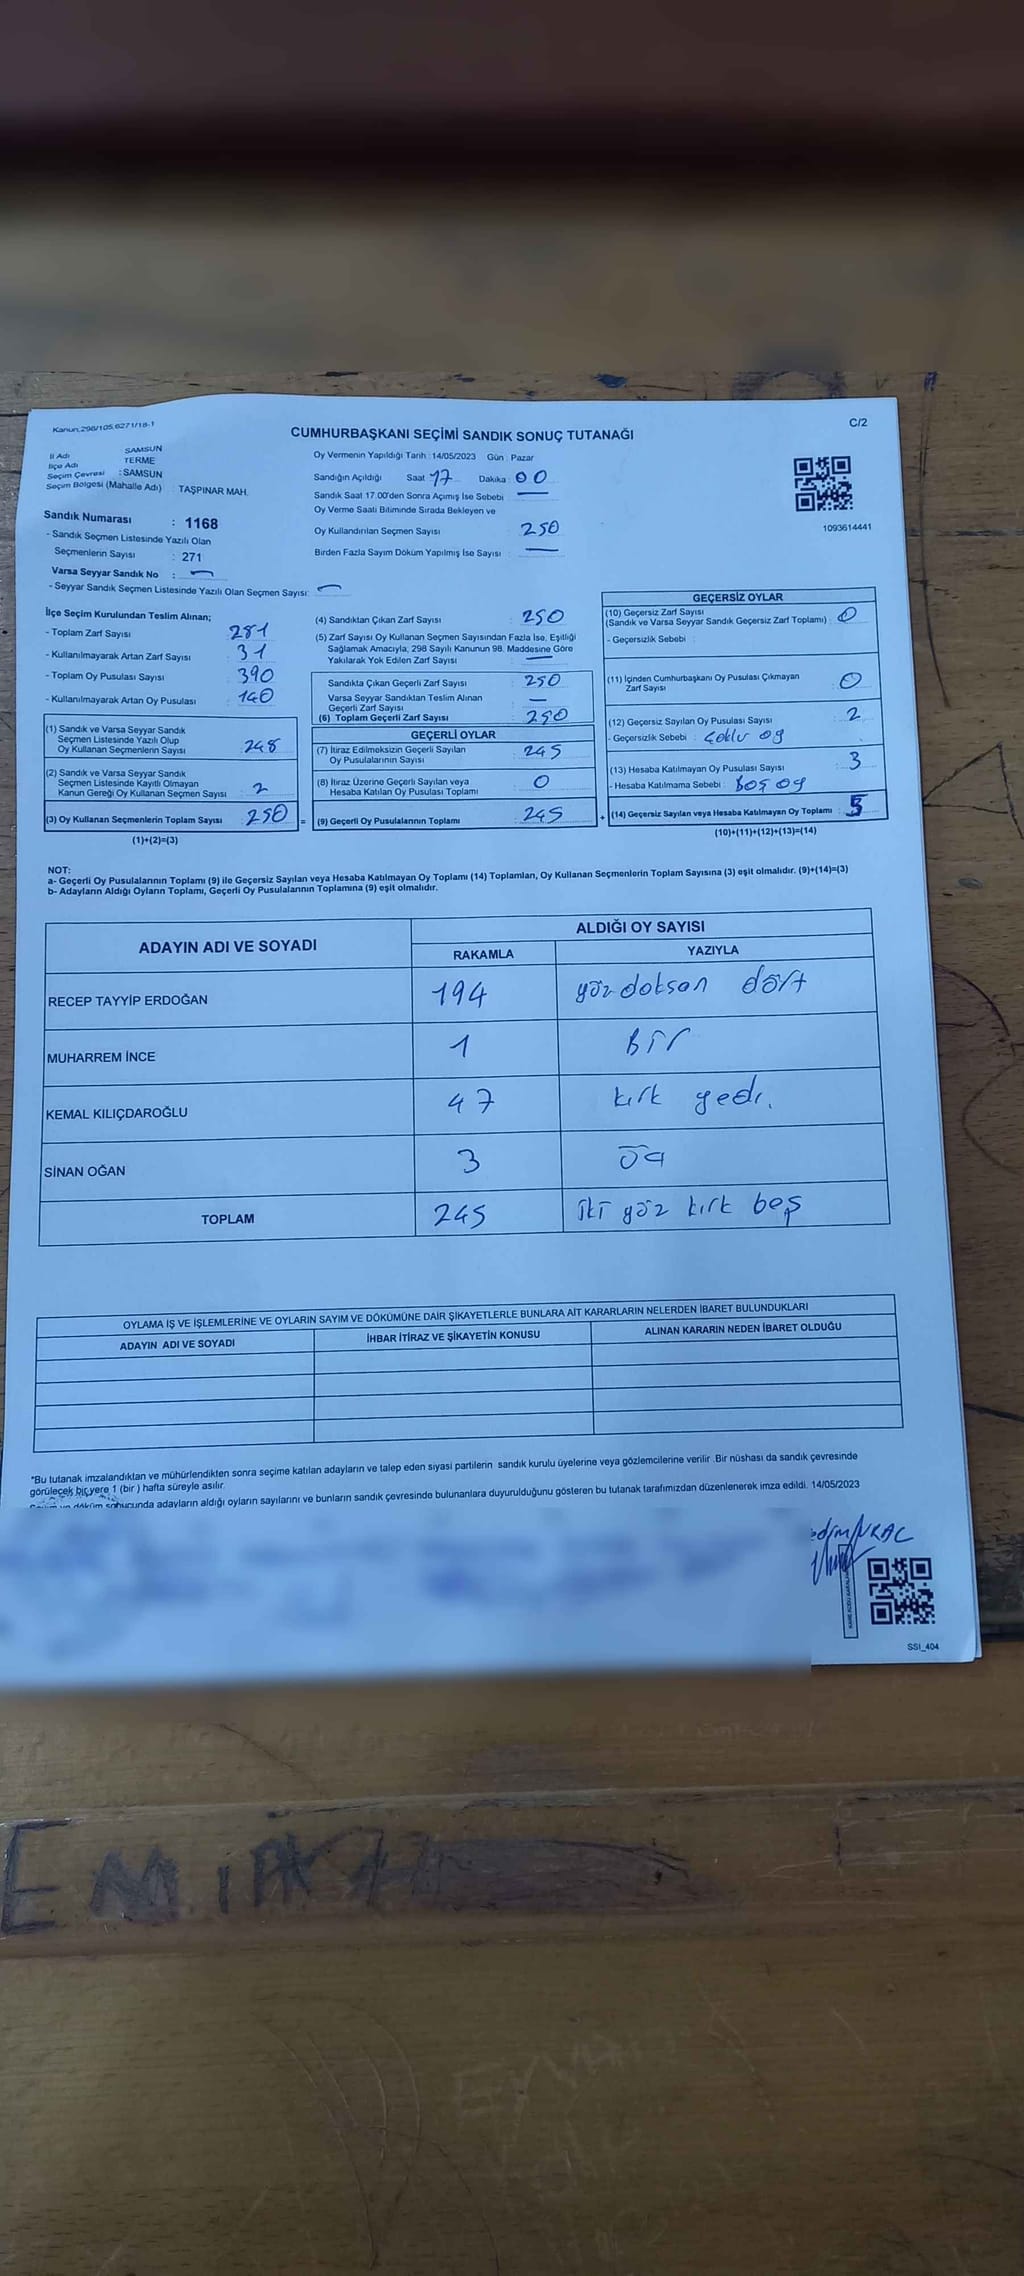 Kanun,298/105,6271/18-1
C/2
CUMHURBAŞKANI SEÇİMİ SANDIK SONUÇ TUTANAĞI
İl Adı SAMSUN
İlçe Adı TERME
Seçim Çevresi : SAMSUN
Seçim Bölgesi (Mahalle Adı) TAŞPINAR MAH.
Sandık Numarası : 1168
- Sandık Seçmen Listesinde Yazılı Olan
Seçmenlerin Sayısı : 271
Varsa Seyyar Sandık No : —
- Seyyar Sandık Seçmen Listesinde Yazılı Olan Seçmen Sayısı: —
Oy Vermenin Yapıldığı Tarih : 14/05/2023 Gün : Pazar
Sandığın Açıldığı Saat 17 Dakika : 00
Sandık Saat 17.00'den Sonra Açımış İse Sebebi —
Oy Verme Saati Bitiminde Sırada Bekleyen ve
Oy Kullandırılan Seçmen Sayısı : 250
Birden Fazla Sayım Döküm Yapılmış İse Sayısı : —
1093614441
İlçe Seçim Kurulundan Teslim Alınan;
- Toplam Zarf Sayısı : 281
- Kullanılmayarak Artan Zarf Sayısı : 31
- Toplam Oy Pusulası Sayısı : 390
- Kullanılmayarak Artan Oy Pusulası : 140
(1) Sandık ve Varsa Seyyar Sandık
Seçmen Listesinde Yazılı Olup
Oy Kullanan Seçmenlerin Sayısı : 248
(2) Sandık ve Varsa Seyyar Sandık
Seçmen Listesinde Kayıtlı Olmayan
Kanun Gereği Oy Kullanan Seçmen Sayısı : 2
(3) Oy Kullanan Seçmenlerin Toplam Sayısı : 250 =
(1)+(2)=(3)
(4) Sandıktan Çıkan Zarf Sayısı : 250
(5) Zarf Sayısı Oy Kullanan Seçmen Sayısından Fazla İse, Eşitliği
Sağlamak Amacıyla, 298 Sayılı Kanunun 98. Maddesine Göre
Yakılarak Yok Edilen Zarf Sayısı : —
Sandıkta Çıkan Geçerli Zarf Sayısı : 250
Varsa Seyyar Sandıktan Teslim Alınan
Geçerli Zarf Sayısı : —
(6) Toplam Geçerli Zarf Sayısı : 250
GEÇERLİ OYLAR
(7) İtiraz Edilmeksizin Geçerli Sayılan
Oy Pusulalarının Sayısı : 245
(8) İtiraz Üzerine Geçerli Sayılan veya
Hesaba Katılan Oy Pusulası Toplamı : 0
(9) Geçerli Oy Pusulalarının Toplamı : 245 +
GEÇERSİZ OYLAR
(10) Geçersiz Zarf Sayısı
(Sandık ve Varsa Seyyar Sandık Geçersiz Zarf Toplamı) : 0
- Geçersizlik Sebebi :
(11) İçinden Cumhurbaşkanı Oy Pusulası Çıkmayan
Zarf Sayısı : 0
(12) Geçersiz Sayılan Oy Pusulası Sayısı : 2
- Geçersizlik Sebebi : Çoklu oy
(13) Hesaba Katılmayan Oy Pusulası Sayısı : 3
- Hesaba Katılmama Sebebi : Boş oy
(14) Geçersiz Sayılan veya Hesaba Katılmayan Oy Toplamı : 5
(10)+(11)+(12)+(13)=(14)
NOT:
a- Geçerli Oy Pusulalarının Toplamı (9) ile Geçersiz Sayılan veya Hesaba Katılmayan Oy Toplamı (14) Toplamları, Oy Kullanan Seçmenlerin Toplam Sayısına (3) eşit olmalıdır. (9)+(14)=(3)
b- Adayların Aldığı Oyların Toplamı, Geçerli Oy Pusulalarının Toplamına (9) eşit olmalıdır.
ADAYIN ADI VE SOYADI ALDIĞI OY SAYISI
RAKAMLA YAZIYLA
RECEP TAYYİP ERDOĞAN 194 yüz doksan dört
MUHARREM İNCE 1 Bir
KEMAL KILIÇDAROĞLU 47 kırk yedi.
SİNAN OĞAN 3
TOPLAM 245 iki yüz kırk beş
OYLAMA İŞ VE İŞLEMLERİNE VE OYLARIN SAYIM VE DÖKÜMÜNE DAİR ŞİKAYETLERLE BUNLARA AİT KARARLARIN NELERDEN İBARET BULUNDUKLARI
ADAYIN ADI VE SOYADI İHBAR İTİRAZ VE ŞİKAYETİN KONUSU ALINAN KARARIN NEDEN İBARET OLDUĞU
*Bu tutanak imzalandıktan ve mühürlendikten sonra seçime katılan adayların ve talep eden siyasi partilerin sandık kurulu üyelerine veya gözlemcilerine verilir. Bir nüshası da sandık çevresinde
görülecek bir yere 1 (bir ) hafta süreyle asılır.
döküm sonucunda adayların aldığı oyların sayılarını ve bunların sandık çevresinde bulunanlara duyurulduğunu gösteren bu tutanak tarafımızdan düzenlenerek imza edildi. 14/05/2023
SSI_404